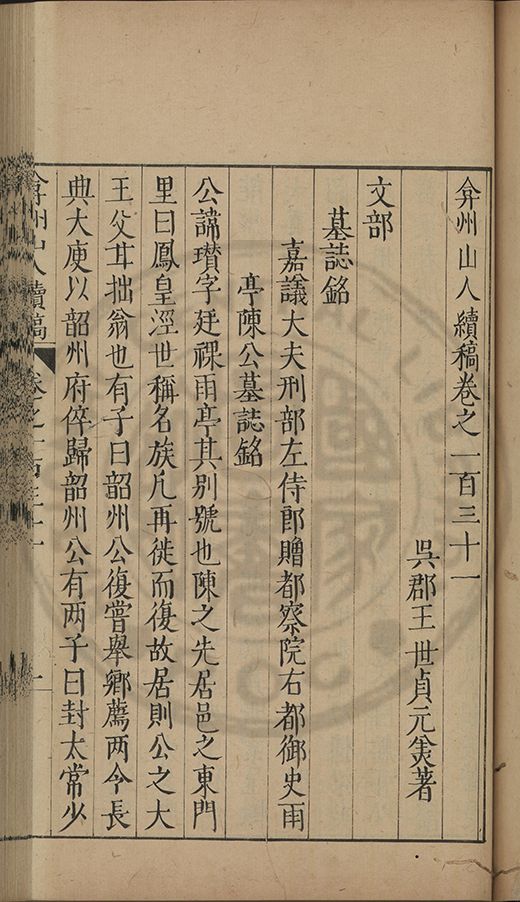 弇州山人續稿卷之一百三十一
吳郡王世貞元美著
文部
墓誌銘
嘉議大夫刑部左侍郎贈都察院右都御史雨
亭陳公墓誌銘
公諱瓚字廷祼雨亭其別號也陳之先居邑之東門
里曰鳳皇涇世稱名族凡再徙而復故居則公之大
王父耳拙翁也有子曰韶州公復嘗舉鄉薦两令長
典大庾以韶州府倅歸韶州公有两子曰封太常少
弇州山人續稿